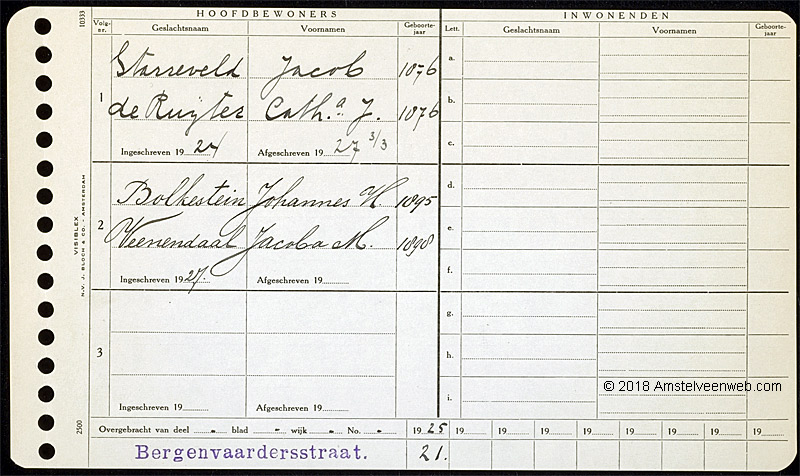 HOOFDBEWONERS
INWONENDEN
Volg-nr.
Geslachtsnaam
Voornamen
Geboorte-jaar
Lett.
Geslachtsnaam
Voornamen
Geboorte-jaar
1
Starreveld Jacob 1876
de Ruijter Cath.a J. 1876
Ingeschreven 1924 Afgeschreven 1927 3/3
2
Bolkestein Johannes H. 1895
Veenendaal Jacoba M. 1898
Ingeschreven 1927. Afgeschreven 19
3
Ingeschreven 19 Afgeschreven 19
a.
b.
c.
d.
e.
f.
g.
h.
i.
© 2018 Amstelveenweb.com
Overgebracht van deel „ blad „ wijk „ No. „
1925 19 19 19 19 19 19 19 19
Bergenvaardersstraat. 21.
10333
VISIBLEX
N.V. J. BLOCH & CO. - AMSTERDAM
2500